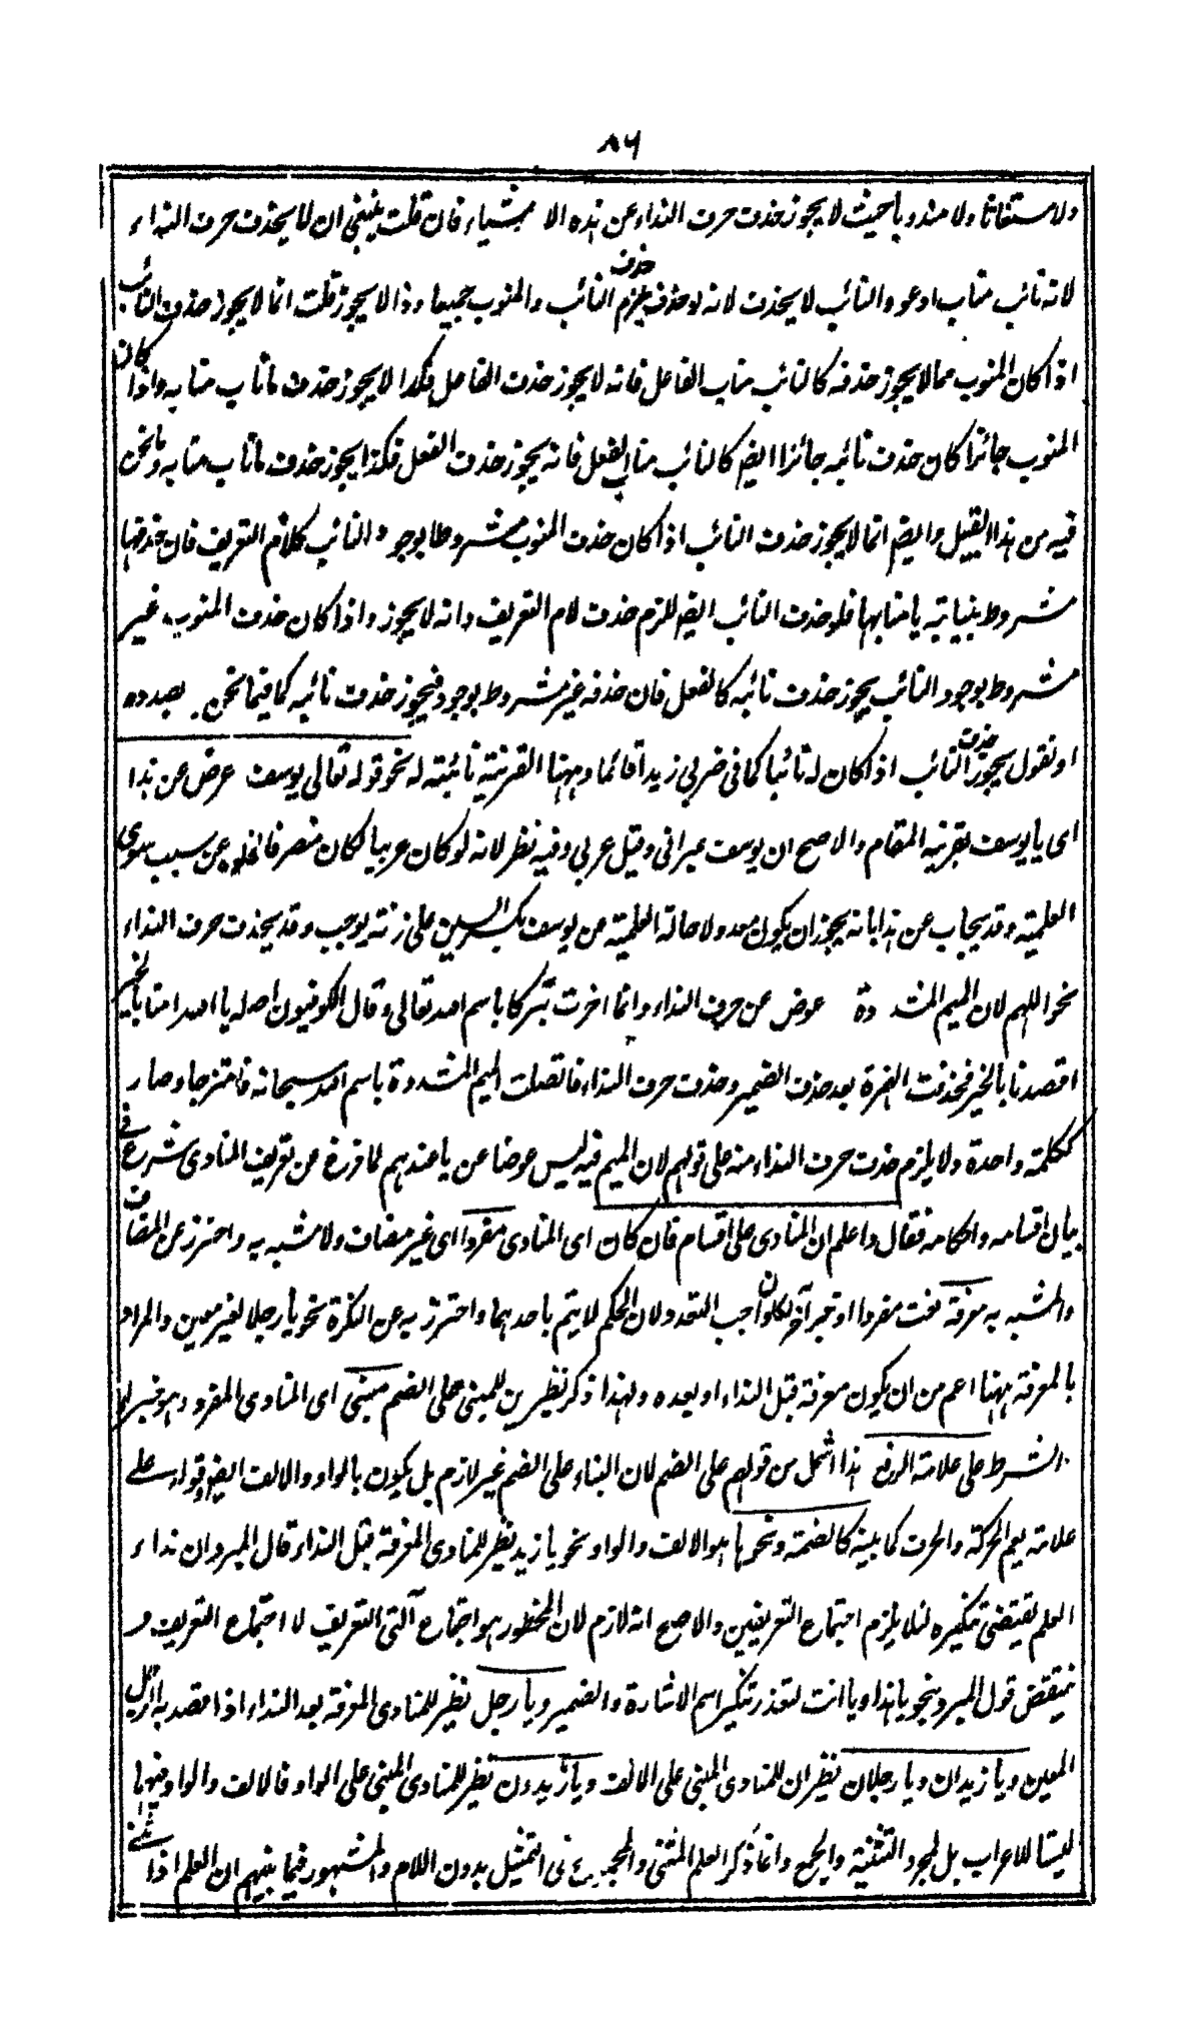 ٨٦
ولا مستغاثا ولا مندوبا حيث لا يجوز حذف حرف النداء عن هذه الاشياء فان قلت ينبغى ان لا يحذف حرف النداء
لانه نائب مناب ادعو والنائب لا يحذف لانه لو حذف يلزم حذف النائب والمنوب جميعا وذا لا يجوز قلت انما لا يجوز حذف النائب
اذا كان المنوب مما لا يجوز حذفه كالنائب مناب الفاعل فانه لا يجوز حذف الفاعل فكذا لا يجوز حذف ما ناب منابه واذا كان
المنوب جائزا كان حذف نائبه جائزا ايضا كالنائب مناب الفعل فانه يجوز حذف الفعل فكذا يجوز حذف ما ناب منابه وما نحن
فيه من هذا القبيل وايضا انما لا يجوز حذف النائب اذا كان حذف المنوب مشروطا بوجود النائب كلام التعريف فان حذفها
مشروط بنيابة يا منابها فلو حذف النائب ايضا للزم حذف لام التعريف وانه لا يجوز واذا كان حذف المنوب غير
مشروط بوجود النائب يجوز حذف نائبه كالفعل فان حذفه غير مشروط بوجود فيجوز حذف نائبه كما فيما نحن بصدده
او نقول يجوز حذف النائب اذا كان له نائبا كما فى ضربى زيدا قائما وههنا القرينة نائبته له نحو قوله تعالى يوسف عرض عن هذا
اى يا يوسف بقرينة المقام والاصح ان يوسف عبرانى وقيل عربى وفيه نظر لانه لو كان عربيا لكان منصرفا لخلوه عن سبب سوى
العلمية وقد يجاب عن هذا بانه يجوز ان يكون معدولا حالة العلمية من يوسف بكسر السين على زنة يوجب وقد يحذف حرف النداء
نحو اللهم لان الميم المشددة عوض عن حرف النداء وانما اخرت تبركا باسم الله تعالى وقال الكوفيون اصله يا الله امنا بالخير اى
اقصدنا بالخير فحذفت الهمزة بعد حذف الضمير وحذف حرف النداء فاتصلت الميم المشددة باسم الله سبحانه فامتزجا وصار
ككلمة واحدة ولا يلزم حذف حرف النداء منه على قولهم لان الميم فيه ليس عوضا عن يا عندهم لما فرغ من تعريف المنادى شرع فى
بيان اقسامه واحكامه فقال واعلم ان المنادى على اقسام فان كان اى المنادى مفردا اى غير مضاف ولا مشبه به واحترز عن المضاف
والمشبه به معرفة نعت مفردا او خبر آخر لكان واجب التعدد لان الحكم لا يتم باحدهما واحترز به عن النكرة نحو يا رجلا لغير معين والمراد
بالمعرفة ههنا اعم من ان يكون معرفة قبل النداء او بعده ولهذا ذكر نظيرين للمبنى على الضم مبنى اى المنادى المفرد وهو خبر او
الشرط على علامة الرفع هذا اشمل من قولهم على الضم لان البناء على الضم غير لازم بل يكون بالواو والالف ايضا وقوله على
علامة يعم الحركة والحرف كما بينه كالضمة ونحوها هو الالف والواو نحو يا زيد نظير للمنادى المعرفة قبل النداء قال المبرد ان نداء
العلم يقتضى تنكيره لئلا يلزم اجتماع التعريفين والاصح انه لازم لان المحظور هو اجتماع آلتى التعريف لا اجتماع التعريف و
ينتقض قول المبرد بنحو يا هذا ويا انت لتعذر تنكير اسم الاشارة والضمير ويا رجل نظير للمنادى المعرفة بعد النداء اذا قصد به الرجل
المعين ويا زيدان ويا رجلان نظيران للمنادى المبنى على الالف ويا زيدون نظير للمنادى المبنى على الواو فالالف والواو فيهما
ليستا للاعراب بل لمجرد التثنية والجمع وانما ذكر العلم المثنى والمجموع فى التمثيل بدون اللام والمشهور فيما بينهم ان العلم اذا